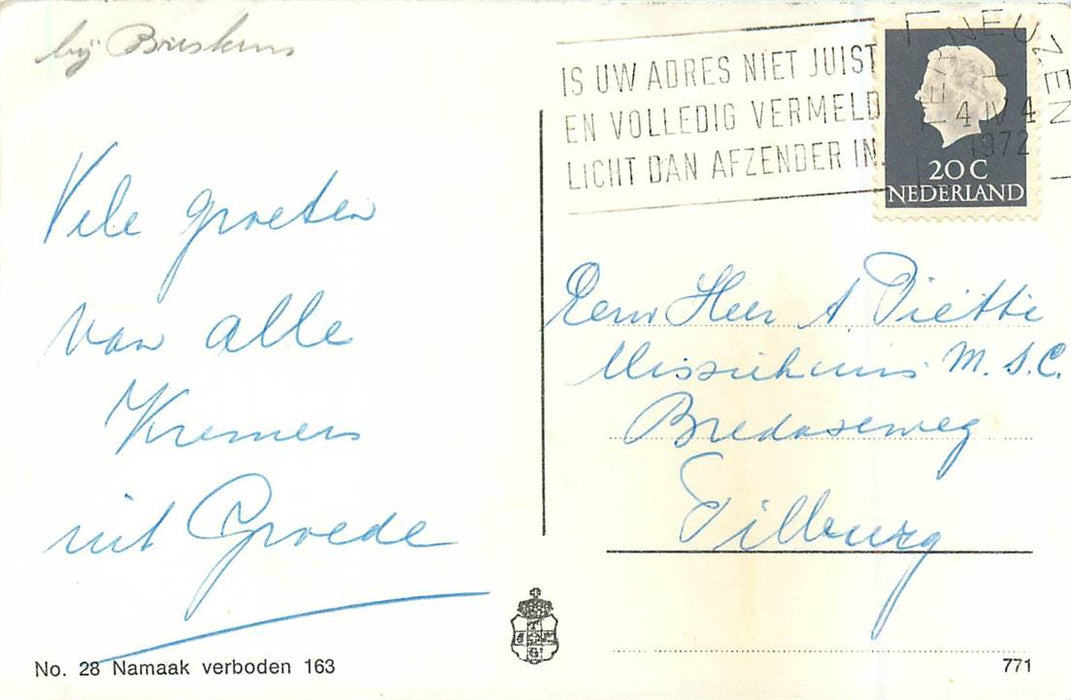 bij Breskens
IS UW ADRES NIET JUIST
EN VOLLEDIG VERMELD
LICHT DAN AFZENDER IN.
TERNEUZEN
4 IV 4
1972
20 C
NEDERLAND
Vele groeten
van alle
Kremers
uit Groede
Eerw Heer A. Piëtte
Missiehuis M.S.C.
Bredaseweg
Tilburg
No. 28 Namaak verboden 163
771